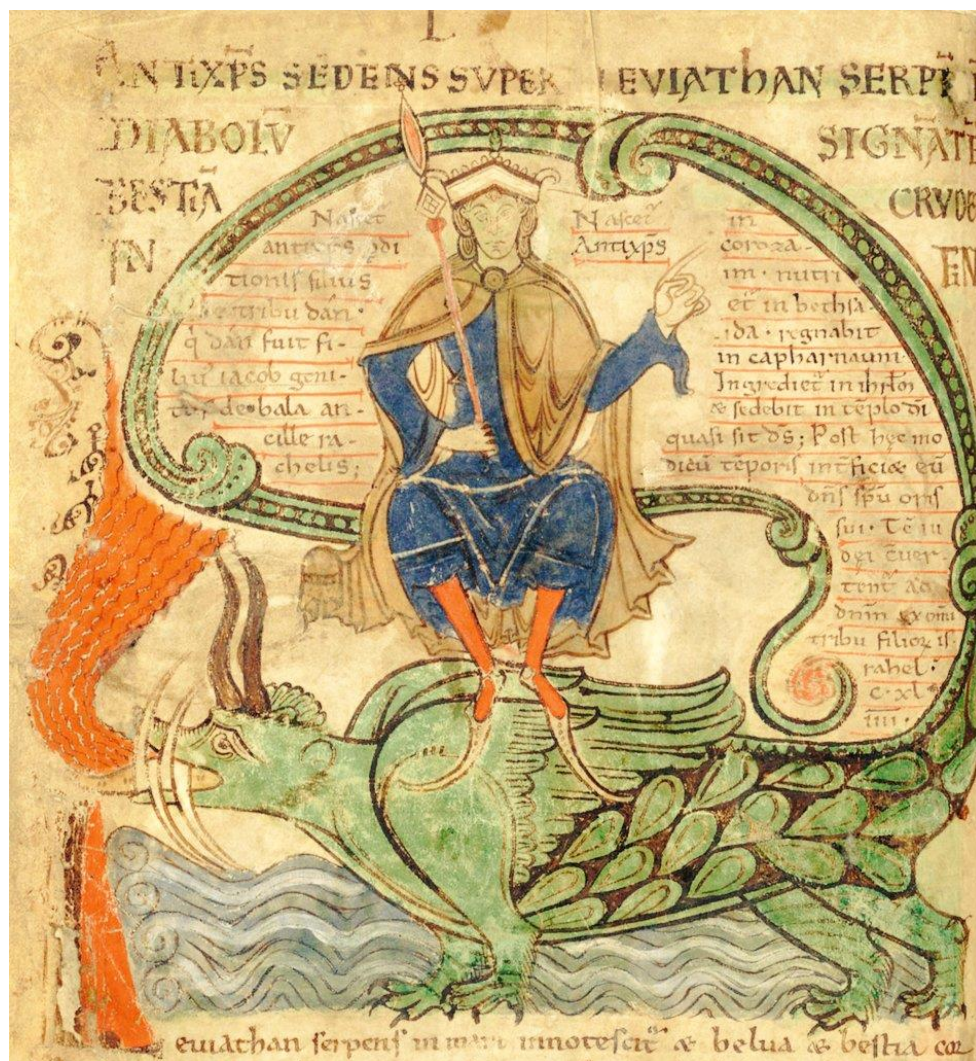 L
ANTIXP̄S SEDENS SVPER LEVIATHAN SERPĒ
DIABOLV̄ SIGNĀT
BESTIĀ CRVDE
IN FIN
Nascet̄
antixp̄s p̱di
tionis filius
de tribu dan·
q̄ dan fuit fi-
lius iacob geni-
tus de bala an-
cille ra-
chelis;
Nascet̄ in
Antixp̄s coroza-
im· nutri
et̄ in bethsa-
ida· regnabit
in capharnaum·
Ingrediet̄ in ihrl̄m
& sedebit in tēplo dī
quasi sit ds̄; Post hęc mo
dicū tēporis int̄ficiæ eū
dn̄s sp̄u oris
sui· Tē iu
dei cūer
tent̄ ad
dnm̄ ex omi
tribu filioꝝ is
rahel·
c·xl
iiii·
euiathan serpens in mari innotescit̄ & belua & bestia cor